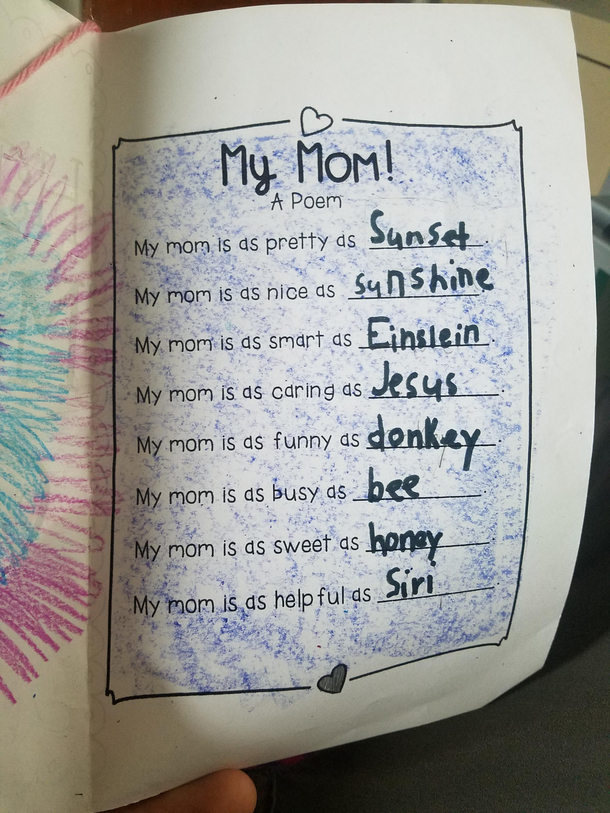 My Mom!
A Poem
My mom is as pretty as Sunset.
My mom is as nice as sunshine.
My mom is as smart as Einslein.
My mom is as caring as Jesus.
My mom is as funny as donkey.
My mom is as busy as bee.
My mom is as sweet as honey.
My mom is as helpful as Siri.